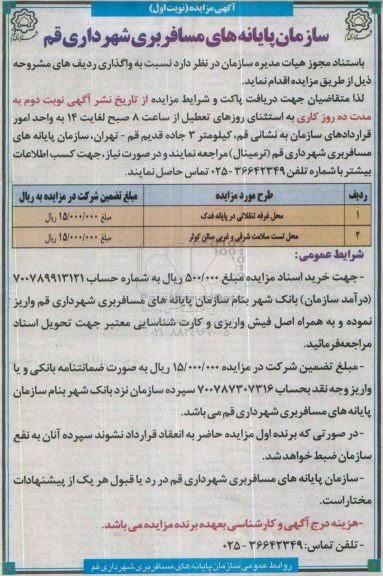 آگهی مزایده (نوبت اول)
سازمان پایانه های مسافربری شهرداری قم
باستناد مجوز هیات مدیره سازمان در نظر دارد نسبت به واگذاری ردیف های مشروحه
ذیل از طریق مزایده اقدام نماید.
لذا متقاضیان جهت دریافت پاکت و شرایط مزایده از تاریخ نشر آگهی نوبت دوم به
مدت ده روز کاری به استثنای روزهای تعطیل از ساعت ۸ صبح لغایت ۱۴ به واحد امور
قراردادهای سازمان به نشانی قم، کیلومتر ۳ جاده قدیم قم - تهران، سازمان پایانه های
مسافربری شهرداری قم (ترمینال) مراجعه نمایند و در صورت نیاز، جهت کسب اطلاعات
بیشتر با شماره تلفن ۳۶۶۴۲۳۴۹-۰۲۵ تماس حاصل نمایند.
ردیف طرح مورد مزایده مبلغ تضمین شرکت در مزایده به ریال
۱ محل غرفه تنقلاتی در پایانه فدک مبلغ ۱۵/۰۰۰/۰۰۰ ریال
۲ محل تست سلامت شرقی و غربی سالن کوثر مبلغ ۱۵/۰۰۰/۰۰۰ ریال
شرایط عمومی:
-جهت خرید اسناد مزایده مبلغ ۵۰۰/۰۰۰ ریال به شماره حساب ۷۰۰۷۸۹۹۱۳۱۲۱
(درآمد سازمان) بانک شهر بنام سازمان پایانه های مسافربری شهرداری قم واریز
نموده و به همراه اصل فیش واریزی و کارت شناسایی معتبر جهت تحویل اسناد
مراجعه فرمائید.
-مبلغ تضمین شرکت در مزایده ۱۵/۰۰۰/۰۰۰ ریال به صورت ضمانتنامه بانکی و یا
واریز وجه نقد بحساب ۷۰۰۷۸۷۳۰۷۳۱۶ سپرده سازمان نزد بانک شهر بنام سازمان
پایانه های مسافربری شهرداری قم می باشد.
-در صورتی که برنده اول مزایده حاضر به انعقاد قرارداد نشوند سپرده آنان به نفع
سازمان ضبط خواهد شد.
-سازمان پایانه های مسافربری شهرداری قم در رد یا قبول هر یک از پیشنهادات
مختار است.
-هزینه درج آگهی و کارشناسی بعهده برنده مزایده می باشد.
-تلفن تماس: ۳۶۶۴۲۳۴۹-۰۲۵
روابط عمومی سازمان پایانه های مسافربری شهرداری قم